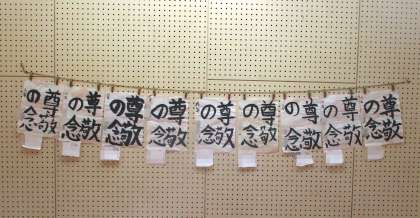 尊敬の念
尊敬の念
尊敬の念
尊敬の念
尊敬の念
尊敬の念
尊敬の念
尊敬の念
尊敬の念